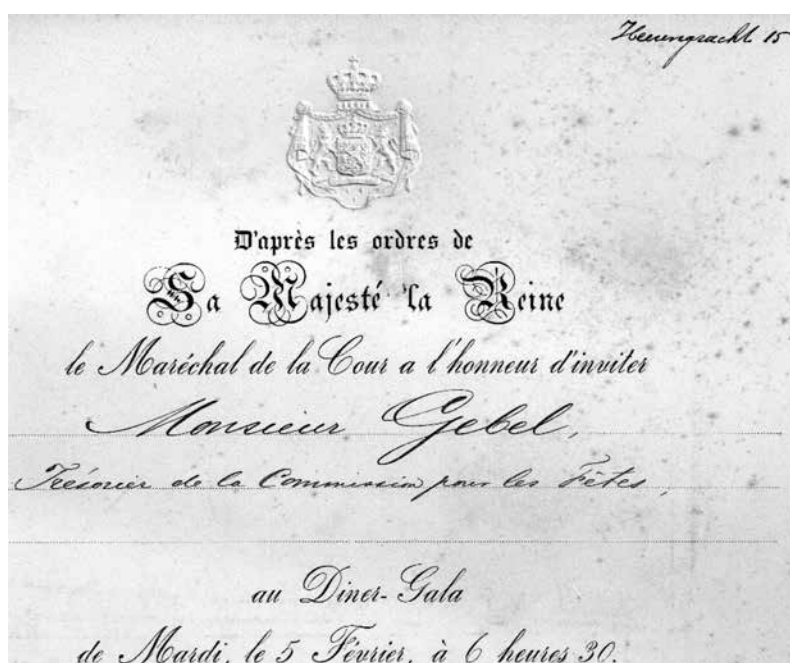 Heerengracht 15
D'après les ordres de
Sa Majesté la Reine
le Maréchal de la Cour a l'honneur d'inviter
Monsieur Gebel,
Trésorier de la Commission pour les Fêtes,
au Diner-Gala
de Mardi, le 5 Février, à 6 heures 30.